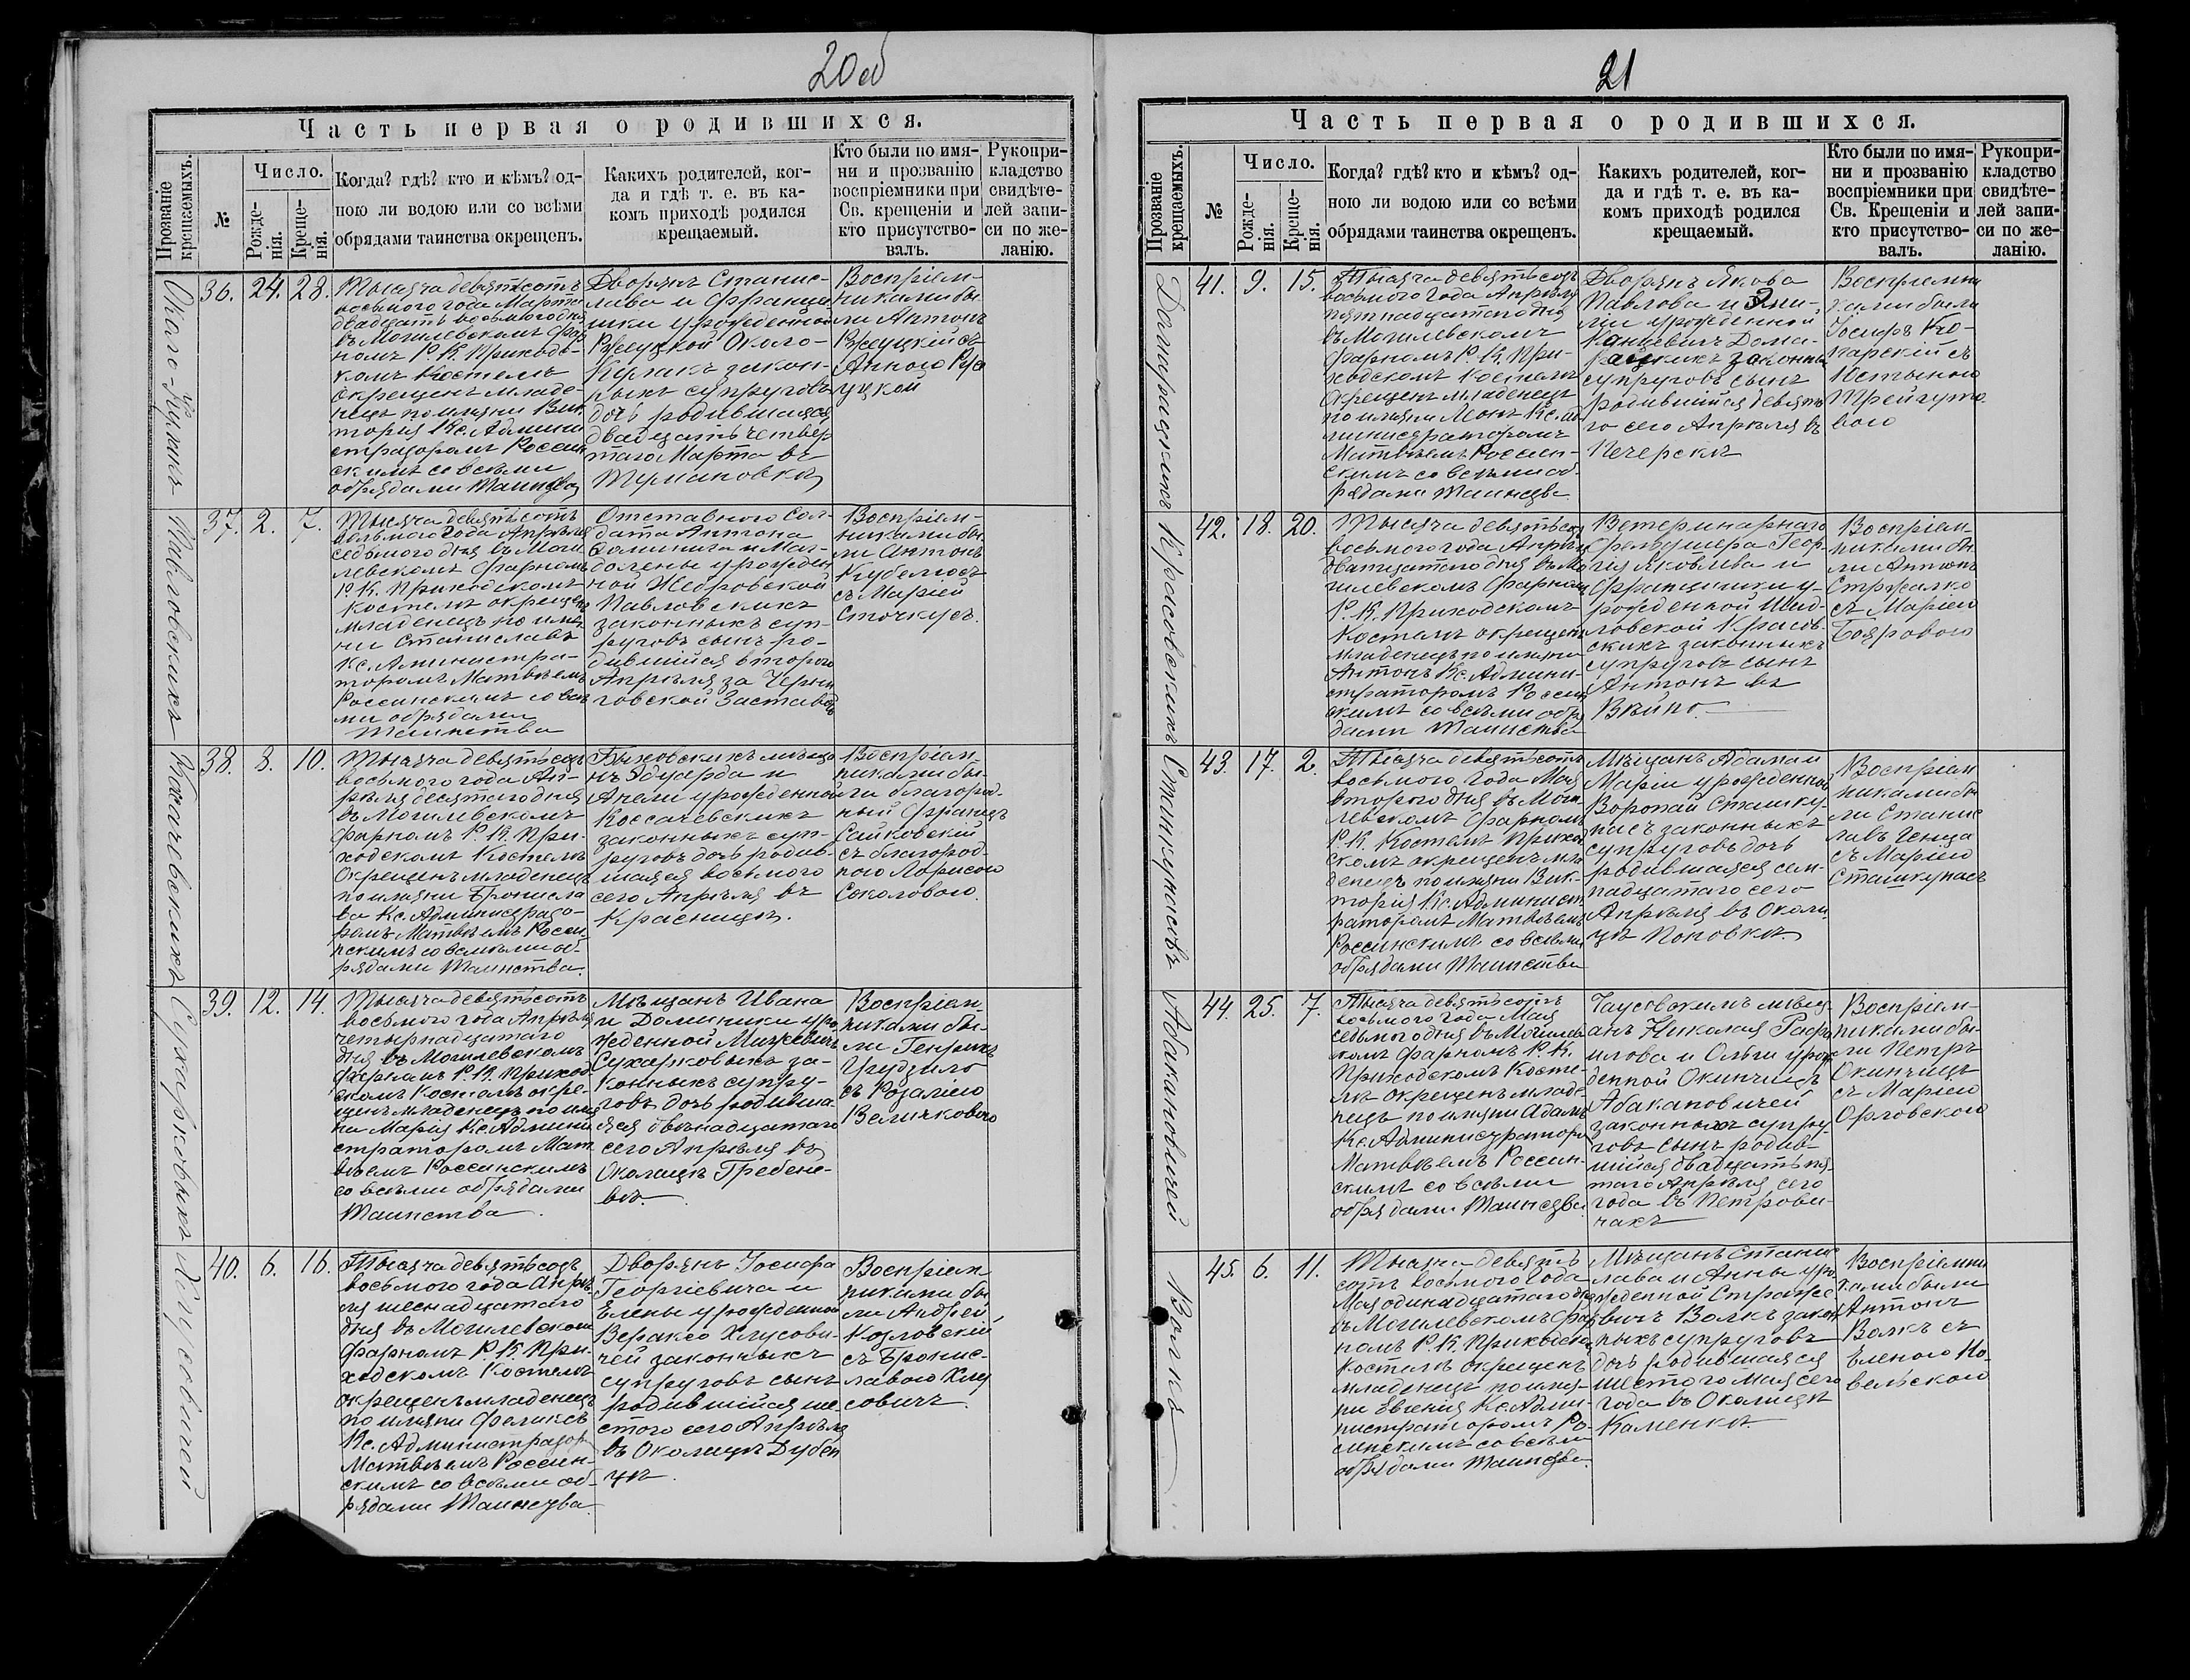 20об
Часть первая о родившихся.
Прозваніе крещаемыхъ.
№
Число.
Рожде-
нія.
Креще-
нія.
Когда? гдѣ? кто и кѣмъ? од-
ною ли водою или со всѣми
обрядами таинства окрещенъ.
Какихъ родителей, ког-
да и гдѣ т. е. въ ка-
комъ приходѣ родился
крещаемый.
Кто были по имя-
ни и прозванію
воспріемники при
Св. крещеніи и
кто присутство-
валъ.
Рукопри-
кладство
свидѣте-
лей запи-
си по же-
ланію.
36. 24. 28.
Тысяча девятьсотъ
восьмого года Марта
двадцать восьмого дня
въ Могилевскомъ фар
номъ Р. К. Приход-
комъ Костелѣ
окрещенъ младе
нецъ по имяни Вик
торія Кс. Админи
страторомъ Россин
скимъ со всѣми
обрядами Таинства
Дворянъ Станис-
лава и Францы
шки урожденной
Окол-
законн
ныхъ супруговъ
дочь родившаяся
двадцать четвер
таго Марта въ
Тумановкѣ
Воспріем-
никами бы
ли Антонъ
Ржеуцкій съ
Анною Рже
уцкой
Павловскихъ
37. 2. 7.
Тысяча девятьсотъ
восьмого года Апрѣля
седьмого дня въ Моги
левскомъ фарномъ
Р. К. Приходскомъ
Костелѣ окрещенъ
младенецъ по имя
ни Станиславъ
Кс. Администра-
торомъ Матвѣемъ
Россинскимъ со всѣ
ми обрядами
Таинства
Отставного Сол-
дата Антона
Доминика и Маг-
далены урожден
ной Жебровской
Павловскихъ
законныхъ суп-
руговъ сынъ ро-
дившійся второго
Апрѣля за Черни
говской Заставой
Воспріем-
никами бы
ли Антонъ
Кубелюсъ
съ Маріей
Сточкусъ.
Коссачевскихъ
38. 8. 10.
Тысяча девятьсотъ
восьмого года Ап-
рѣля десятого дня
въ Могилевскомъ
фарномъ Р. К. При-
ходскомъ Костелѣ
Окрещенъ младенецъ
по имяни Бронисла
ва Кс. Администрато-
ромъ Матвѣемъ Росси-
нскимъ со всѣми об-
рядами Таинства.
Быховскихъ мѣща
нъ Эдуарда и
Анели урожденной
Коссачевскихъ
законныхъ суп-
руговъ дочь родив-
шаяся восьмого
сего Апрѣля въ
Красницѣ.
Воспріем
никами бы-
ли благород-
ный Францъ
Сайковскій
съ благород-
ного Ларисою
Соколовою.
Сухарковыхъ
39. 12. 14.
Тысяча девятьсотъ
восьмого года Апрѣля
четырнадцатого
дня въ Могилевскомъ
фарномъ Р. К. Приход-
скомъ Костелѣ окре-
щенъ младенецъ по имя
ни Марія Кс. Админи
страторомъ Мат
вѣемъ Россинскимъ
со всѣми обрядами
Таинства.
Мѣщанъ Ивана
и Доминики уро
жденной
Сухарковыхъ за-
конныхъ супру-
говъ дочь родивша-
яся двѣнадцатаго
сего Апрѣля въ
Околицѣ Гребене-
вѣ.
Воспріем
никами бы-
ли Генрихъ
Грудзило
съ Розаліею
Величковою
Хлусовичей
40. 6. 16.
Тысяча девятьсотъ
восьмого года Апрѣ-
ля шеснадцатаго
дня въ Могилевском
фарномъ Р. К. При-
ходскомъ Костелѣ
окрещенъ младенецъ
по имяни Феликсъ
Кс. Администратор
Матвѣемъ Россин-
скимъ со всѣми об-
рядами Таинства.
Дворянъ Іосифа
Георгіевича и
Елены урожденной
Вераксо Хлусови-
чей законныхъ
супруговъ сынъ
родившійся ше-
стого сего Апрѣля
въ Околицѣ Дубен
цѣ.
Воспріем
никами бы
ли Андрей
Козловскій
съ Бронис-
лавою Хлу
совичъ.
21
Часть первая о родившихся.
Прозваніе крещаемыхъ.
№
Число.
Рожде-
нія.
Креще-
нія.
Когда? гдѣ? кто и кѣмъ? од-
ною ли водою или со всѣми
обрядами таинства окрещенъ.
Какихъ родителей, ког-
да и гдѣ т. е. въ ка-
комъ приходѣ родился
крещаемый.
Кто были по имя-
ни и прозванію
воспріемники при
Св. Крещеніи и
кто присутство-
валъ.
Рукопри-
кладство
свидѣте-
лей запи-
си по же-
ланію.
41. 9. 15.
Тысяча девятьсотъ
восьмого года Апрѣля
пятнадцатого дня
въ Могилевскомъ
фарномъ Р. К. При-
ходскомъ Костелѣ
окрещенъ младенецъ
по имяни Кс. Ад
министраторомъ
Матвѣемъ Россин-
скимъ со всѣми об-
рядами Таинства
Дворянъ Якова
Павлова и Эми-
ліи урожденной
законны
супруговъ сынъ
родившійся девято
го сего Апрѣля въ
Печерскѣ
Воспріемни
ками были
Іосифъ
съ
Юстыною
Красовскихъ
42. 18. 20.
Тысяча девятьсотъ
восьмого года Апрѣля
двадцатого дня въ Мо
гилевскомъ фарном
Р. К. Приходскомъ
Костелѣ окрещенъ
младенецъ по имяни
Антонъ Кс. Админи-
страторомъ Россин
скимъ со всѣми обря
дами Таинства
Ветеринарнаго
Фельдшера Геор
гія Яковлева и
Францишки у-
рожденной Шид-
ловской Красов-
скихъ законныхъ
супруговъ сынъ
Антонъ въ
Вѣйно.
Воспріем
никами бы
ли Антонъ
Стржалко
съ Маріею
Бояровою
Сташкунасъ
43. 17. 2.
Тысяча девятьсотъ
восьмого года Мая
второго дня въ Моги
левскомъ фарномъ
Р. К. Костелѣ Приход
скомъ окрещенъ мла
денецъ по имяни Вик-
торія Кс. Админист
раторомъ Матвѣемъ
Россинскимъ со всѣми
обрядами Таинства
Мѣщанъ Адама и
Маріи урожденной
Воропай Сташку-
насъ законныхъ
супруговъ дочь
родившаяся сем-
надцатаго сего
Апрѣля въ Околи
цѣ Поповкѣ.
Воспріем
никами бы
ли Станис
лавъ
съ Маріею
Сташкунасъ
Абакановичей
44. 25. 7.
Тысяча девятьсотъ
восьмого года Мая
седьмого дня въ Могилев
скомъ фарномъ Р. К.
Приходскомъ Косте-
лѣ окрещенъ младе
нецъ по имяни Адамъ
Кс. Администраторомъ
Матвѣемъ Россин-
скимъ со всѣми
обрядами Таинства
Чаусовскихъ мѣщ-
анъ Николая Рафа
илова и Ольги урож
денной Окинчицъ
Абакановичей
законныхъ супру
говъ сынъ родив-
шійся двадцать пя-
таго Апрѣля сего
года въ Петрови-
чахъ
Воспріем-
никами бы-
ли Петръ
Окинчицъ
съ Маріею
Орловскою
Волкъ
45. 6. 11.
Тысяча девять
сотъ восьмого года
Мая одинадцатаго дня
въ Могилевскомъ фар
номъ Р. К. Приходском
Костелѣ окрещенъ
младенецъ по имя-
ни Евгенія Кс. Адми-
нистраторомъ Ро-
синскимъ со всѣми
обрядами Таинства.
Мѣщанъ Станис
лава и Анны уро
жденной
Волкъ закон
ныхъ супруговъ
дочь родившаяся
шестого Мая сего
года въ Околицѣ
Каменкѣ.
Воспріемни
ками были
Антонъ
Волкъ съ
Еленою Ко-
вельскою